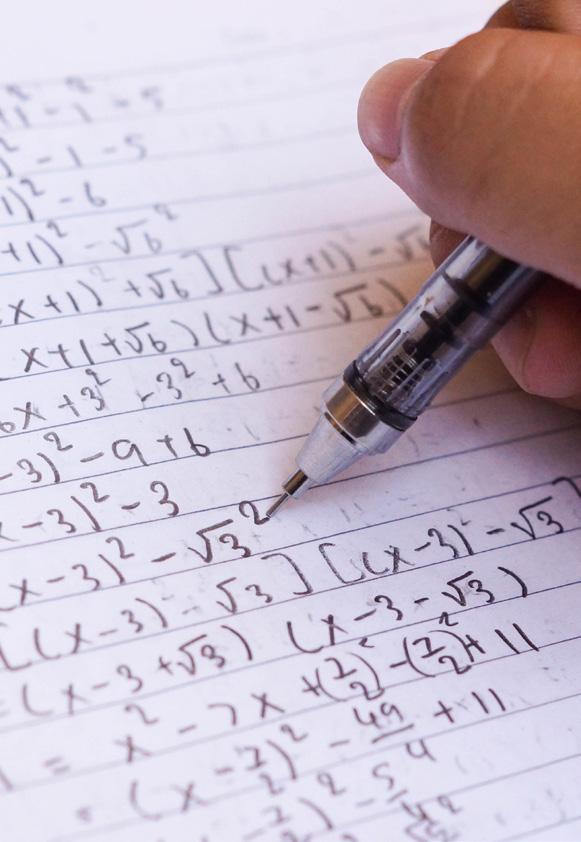 +1)² - 1 - 5
)² - 1 - 5
1)² - 6
+1)² - √6²
x+1)² + √6 ] [(x+1)² - √6
x+1+√6) (x+1-√6)
6x + 3² - 3² + 6
-3)² - 9 + 6
x-3)² - 3
(x-3)² - √3²
[(x-3) - √3 ] [(x-3) - √3 ]
= (x-3+√3) (x-3-√3)
= x² - 7x + (7/2)² - (7/2)² + 11
= (x - 7/2)² - 49/4 + 11
- 7/2)² - 5/4